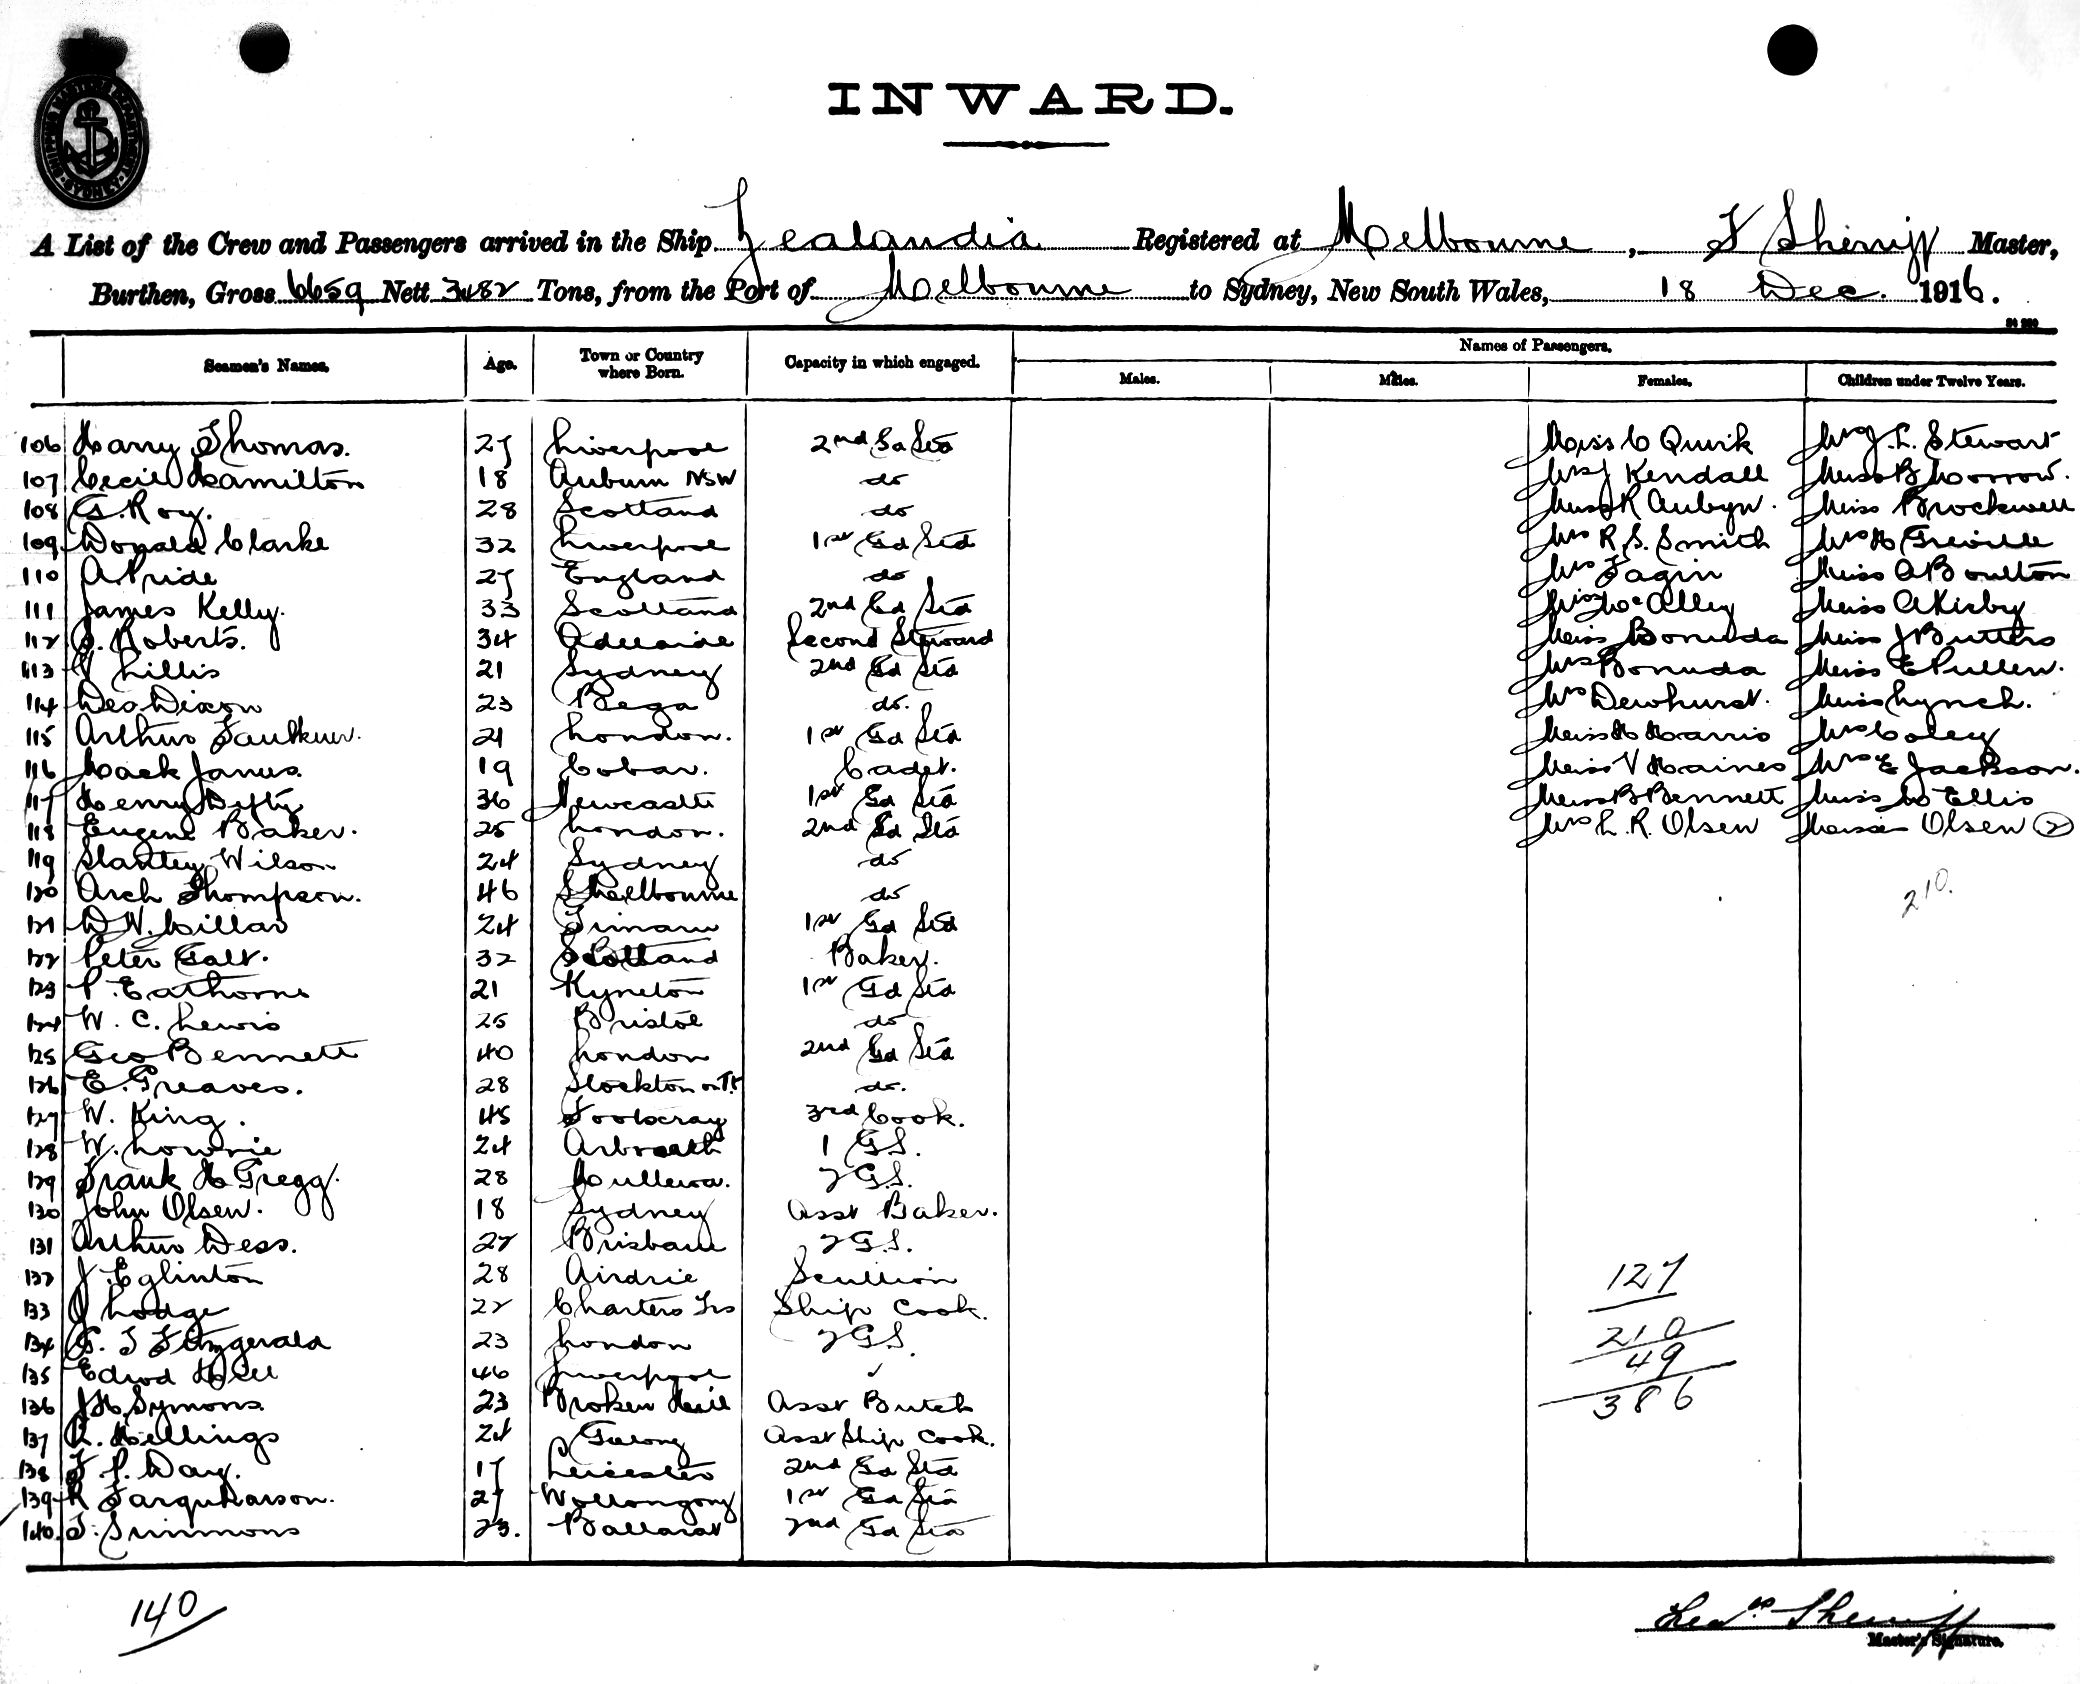 SHIPPING MASTERS DEPARTMENT SYDNEY
INWARD.
A List of the Crew and Passengers arrived in the Ship Zealandia Registered at Melbourne, F Sherriff Master,
Burthen, Gross 6659 Nett 3482 Tons, from the Port of Melbourne to Sydney, New South Wales, 18 Dec. 1916.
Seamen's Names. Age. Town or Country where Born. Capacity in which engaged. Names of Passengers.
Males. Males. Females. Children under Twelve Years.
106 Harry Thomas. 27 Liverpool 2nd Sa Std Miss C Quirk Mrs J. L. Stewart
107 Cecil Hamilton 18 Auburn NSW do Mrs J Kendall Miss B Morrow.
108 G. Roy. 28 Scotland do Miss R Aubyn. Miss Brockwell
109 Donald Clarke 32 Liverpool 1st Gd Std Mrs R. S. Smith Mrs H Greville
110 A Pride 27 England do Mrs Fagin Miss A Boulton
111 James Kelly. 33 Scotland 2nd Gd Std Miss McAlley Miss A Kirby
112 Roberts. 34 Adelaide Second Steward Miss Bonuda Miss J Butters
113 Lillis 21 Sydney 2nd Gd Std Mrs Bonuda Miss E Pullen.
114 Geo Dixon 23 Bega do. Mrs Dewhurst. Miss Lynch.
115 Arthur Faulkner. 21 London. 1st Gd Std Miss H Harris Mrs Coley
116 Mack James. 19 Cobar. Cadet. Miss V Haines Mrs E Jackson.
117 Henry Difty 36 Newcastle 1st Gd Std Miss B Bennett Miss M Ellis
118 Eugene Baker. 25 London. 2nd Gd Std Mrs L. R. Olsen Misses Olsen (2)
119 Stanley Wilson 24 Sydney do
120 Arch Thompson. 46 Shelbourne do 210.
121 D W. Millar 24 Timaru 1st Gd Std
122 Peter Galt. 32 Scotland Baker.
123 P. Eathorne 21 Kyneton 1st Gd Std
124 W. C. Lewis 25 Bristol do
125 Geo Bennett 40 London 2nd Gd Std
126 E. Greaves. 28 Stockton on T. do.
127 W. King. 45 Footscray 3rd Cook.
128 W. Lowrie 24 Arbroath 1 G.S.
129 Frank H Gregg. 28 Mullewa. 2 G.S.
130 John Olsen. 18 Sydney Asst Baker.
131 Arthur Dess. 22 Brisbane 2 G.S.
132 J. Eglinton 28 Airdrie Scullion 127
133 J Lodge 22 Charters Trs Ship Cook.
134 T Fitzgerald 23 London 2 G.S. 210
135 Edwd Hill 46 Liverpool 49
136 J H Symons. 23 Broken Hill Asst Butch 386
137 R. Hellings 24 Geelong Asst Ship Cook.
138 F. P. Day. 17 Leicester 2nd Gd Std
139 R Farquharson. 27 Wollongong 1st Gd Std
140. Simmons 23. Ballarat 2nd Gd Std
140 Sherriff
Master's Signature.